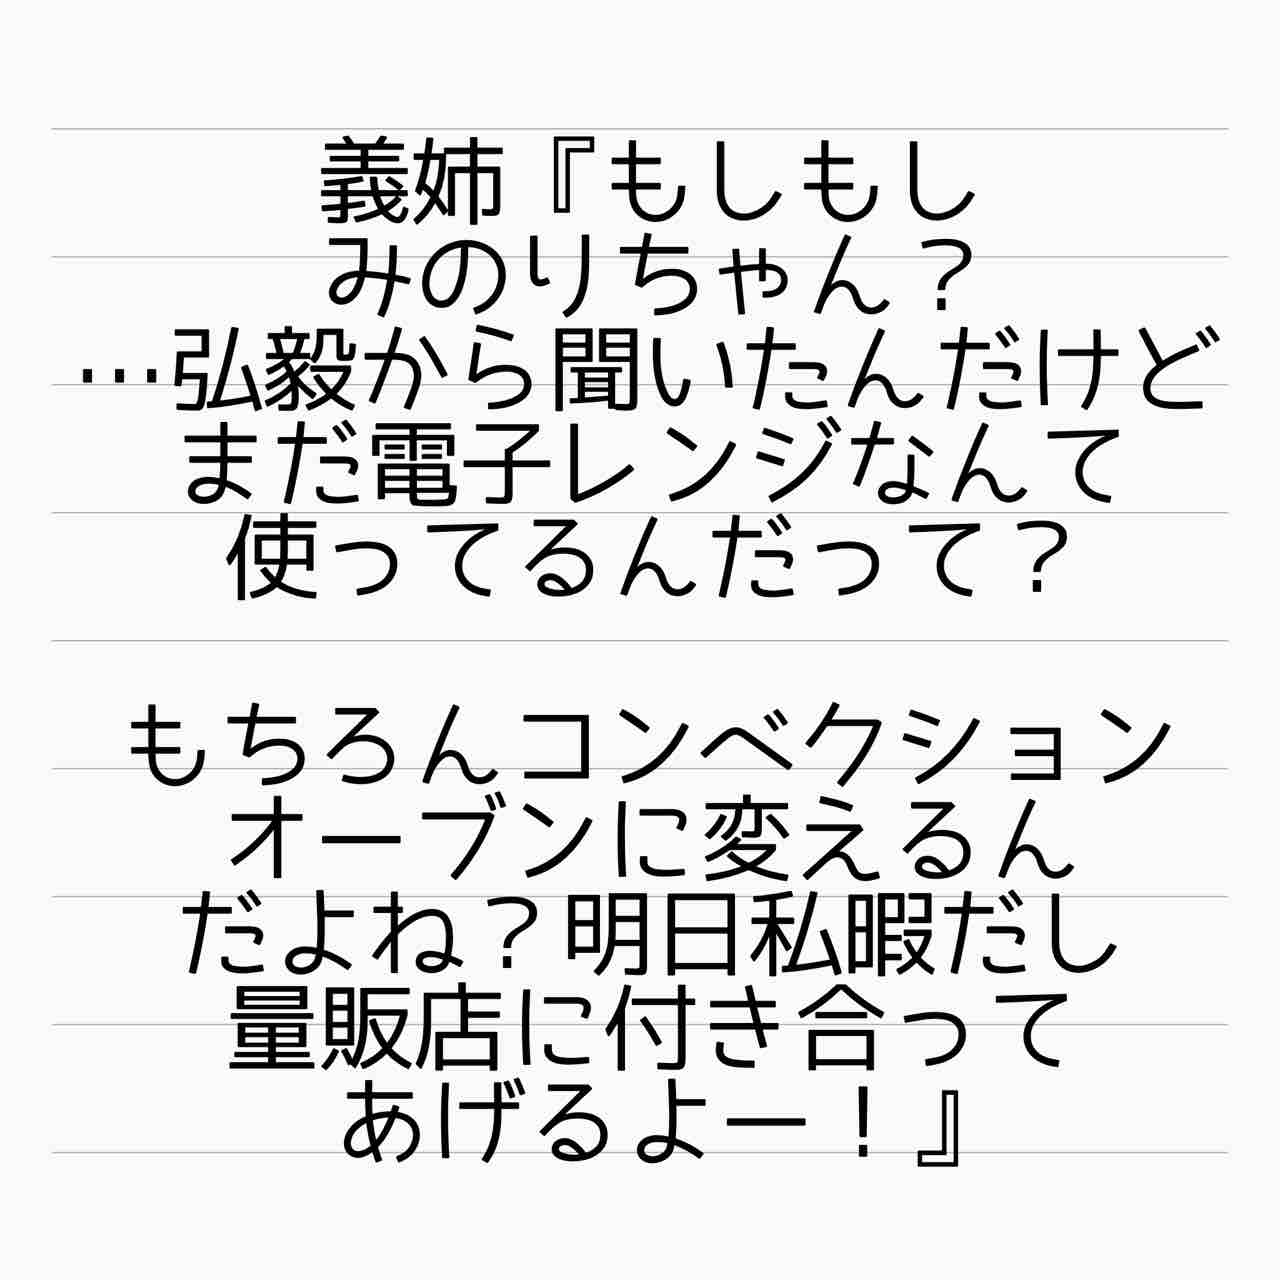 義姉『もしもし
みのりちゃん？
…弘毅から聞いたんだけど
まだ電子レンジなんて
使ってるんだって？
もちろんコンベクション
オーブンに変えるん
だよね？明日私暇だし
量販店に付き合って
あげるよー！』